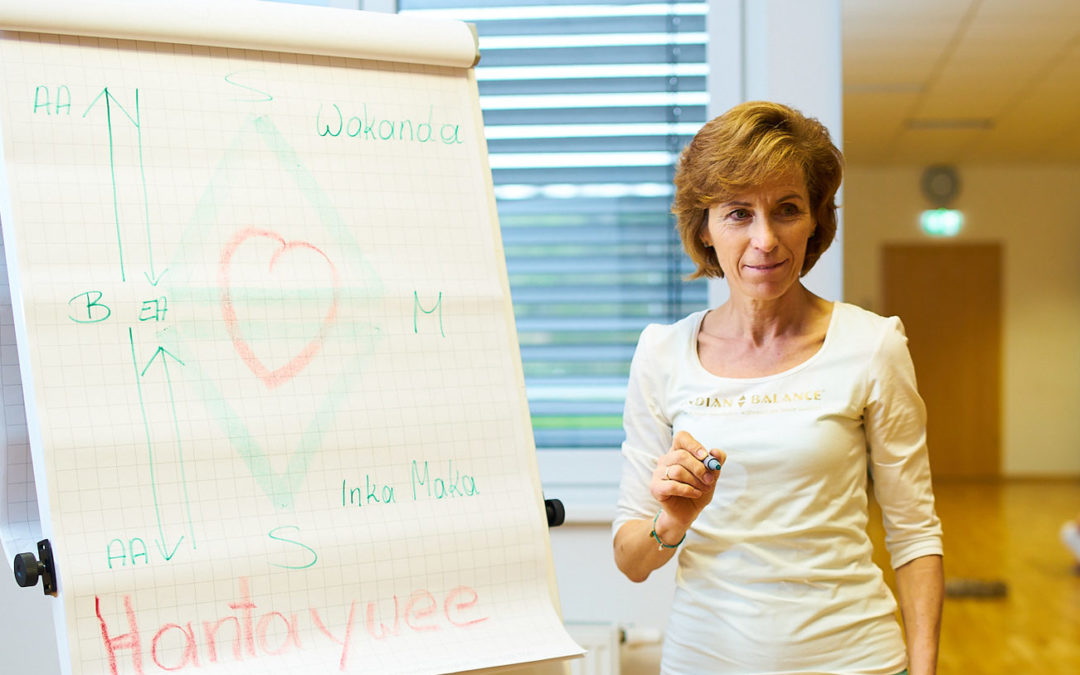 S
AA
Wakanda
B EA M
Inka Maka
AA
S
Hantaywee
DIAN BALANCE